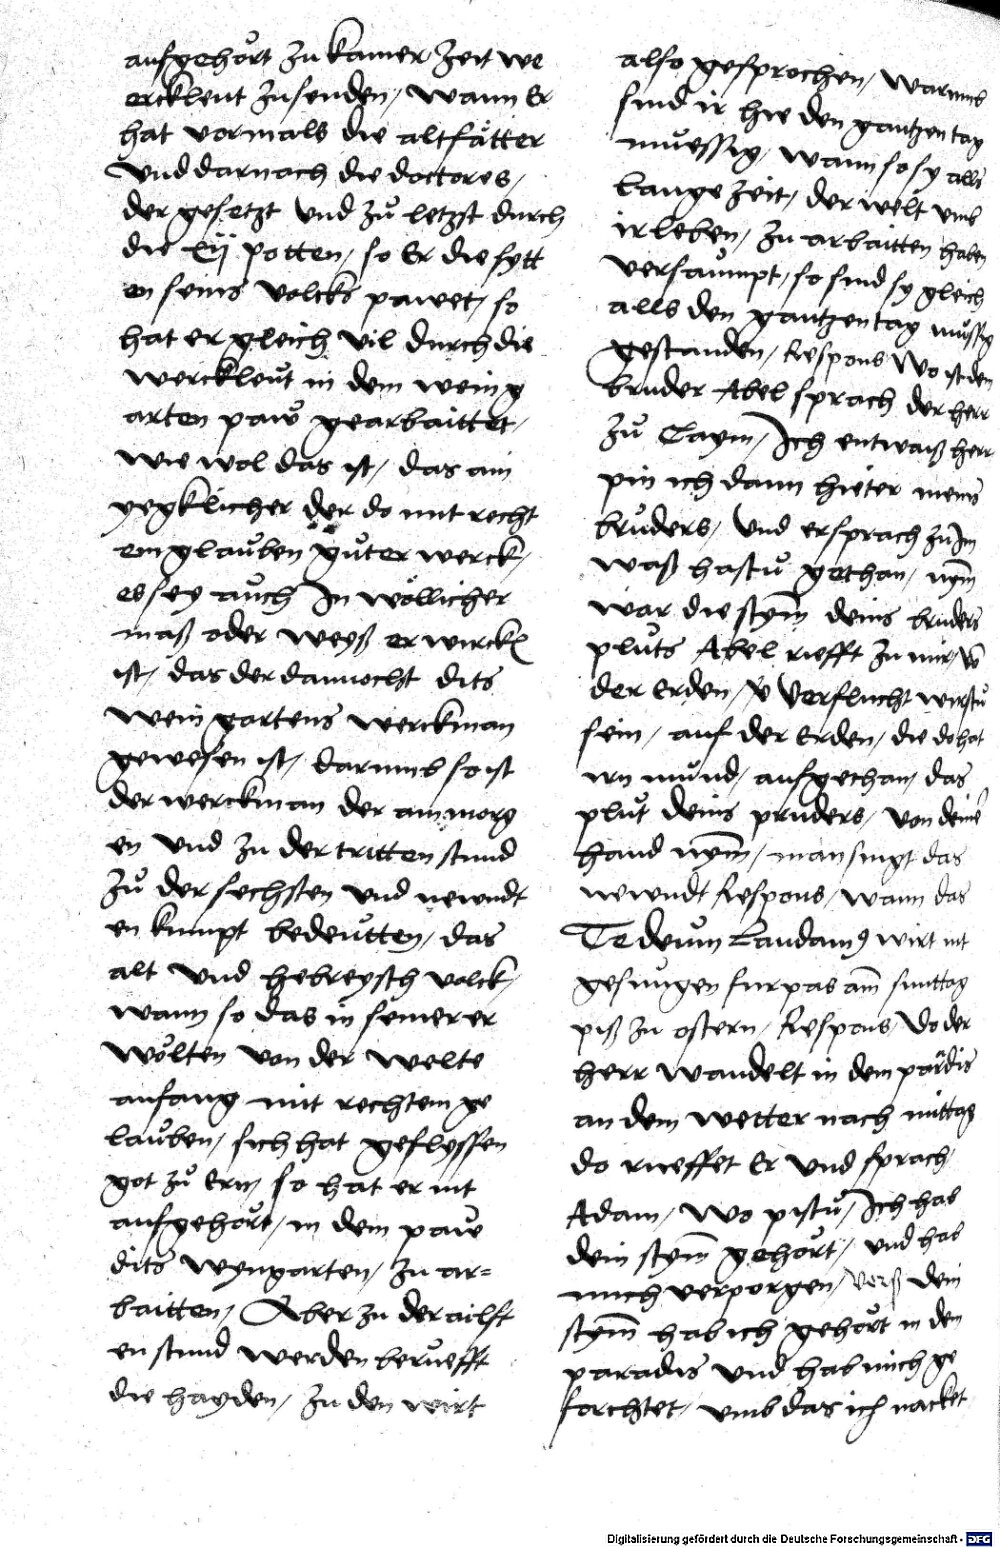 aufgehört zu kainer zeit we
erckleut zusenden / wann Er
hat vormals die altfätter
Vnd darnach die doctores /
der gesetzt Vnd zů letzst durch
die xij potten / so Er die sytt
en seins Volcks pawet / so
hat er gleich vil durch die
werckleůt in dem weing
arten paw gearbaittet /
wie wol das ist / das ain
yegklicher der do mit recht
em glauben gůter werck /
es sey auch In wöllicher
maß oder weyß er wircken
ist / das der dannocht dits
wein gartens werckman
gewesen ist / darumb so ist
der werckman der am morg
en vnd zu der tritten stund
zů der sechsten vnd newndt
en kumpt bedeůtten / das
alt vnd hebreysch volck /
wann so das in seiner er
wölten von der welte
anfang mit rechtem ge
lauben / sich hat geflyssen
got zů Ern so hat er nit
aufgehört / in dem paw
dits wyngarten / zu ar=
baitten / Aber zu der ailft
en stund werden beruefft
die hayden / zu den wirt
also gesprochen / warumb
sind ir hie den gantzen tag
muessig / wann so sy alls
lange zeit / der welt vmb
ir leben / zu arbaitten haben
versaumpt / so sind sy gleich
alls den gantzen tag müssig
gestanden / Respons Wo ist dein
bruder Abel sprach der herr
zů Caym / Ich entwaiß herr
pin ich dann hieter meins
brůders / Vnd er sprach zů Im
waß hastu gethan / nym
war die stym deins bruders
plůts Abel riefft zu mir / vo
der Erden / Verflucht wirstu
sein / auf der Erden / die do hat
irn můnd / aufgethan / das
plůt deins pruders / von deiner
hand nym / man singt das
newndt Respons / wann das
Te deum Laudamus wirt nit
gesungen furpas am sunttag
piß zu ostern / Respons / Do der
herr wandelt in dem pardis
an dem wetter nach mittag
do rueffet Er vnd sprach
Adam / wo pistů / Ich hab
dein stym gehört / vnd hab
mich verporgen / dein
stym hab ich gehört in den
paradis vnd hab mich ge
forchtet / vmb das ich nacket
Digitalisierung gefördert durch die Deutsche Forschungsgemeinschaft - DFG